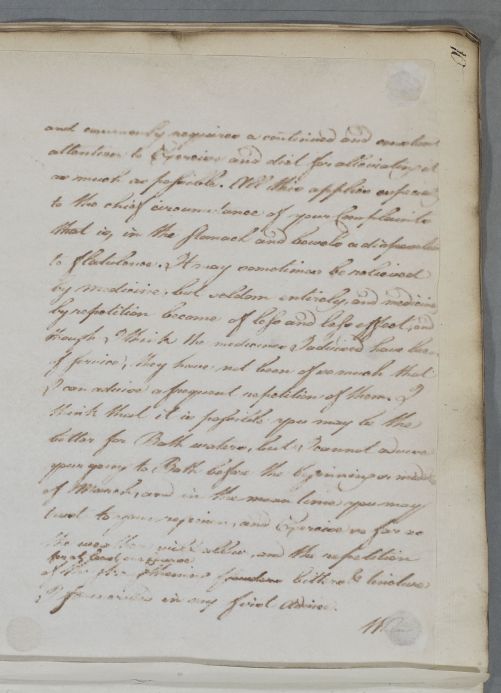 and commonly requires a continued and constant
attention to Exercise and diet for alleviating it
as much as possible. All this applies especia
to the chief circumstance of your Complaints
that is, in the Stomach and bowels a disposition
to flatulence. It may sometimes be relieved
by medicine, but seldom entirely, and medicine
by repetition become of less and less effect, and
though I think the medicines I advised have been
of service, they have not been of so much that
I can advise a frequent repetition of them. I
think that it is possible you may be the
better for Bath waters, but I cannot advise
your going to Bath before the beginning or middle
of March, and in the mean time you may
trust to your regimen, and Exercise so far as
the weather will allow, and the repetition
at least
of the bitters & tincture
I in my first advice.